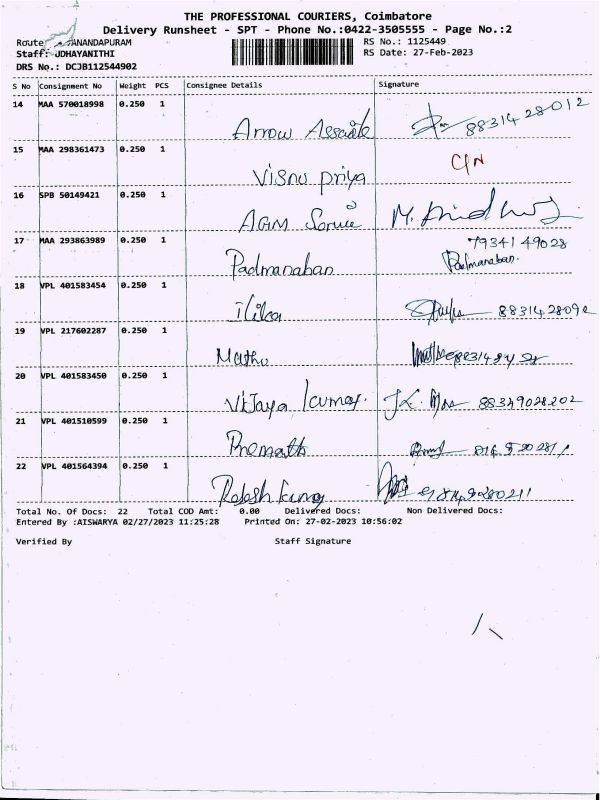 THE PROFESSIONAL COURIERS, Coimbatore
Delivery Runsheet - SPT - Phone No.:0422-3505555 - Page No.:2
Route: ANANDAPURAM
RS No.: 1125449
Staff: JDHAYANITHI
RS Date: 27-Feb-2023
DRS No.: DCJB112544902
S No Consignment No Weight PCS Consignee Details Signature
14 MAA 570018998 0.250 1
Arrow Associate 8831428012
15 MAA 298361473 0.250 1
Visnu priya C/N
16 SPB 50149421 0.250 1
AGM Service
17 MAA 293863989 0.250 1 7934149028
Padmanaban Padmanaban.
18 VPL 401583454 0.250 1
8831428092
19 VPL 217602287 0.250 1
Mathu
20 VPL 401583450 0.250 1
Vijaya kumar. 88349028202
21 VPL 401510599 0.250 1
Premnath
22 VPL 401564394 0.250 1
Rajesh kumar
Total No. Of Docs: 22 Total COD Amt: 0.00 Delivered Docs: Non Delivered Docs:
Entered By :AISWARYA 02/27/2023 11:25:28 Printed On: 27-02-2023 10:56:02
Verified By Staff Signature